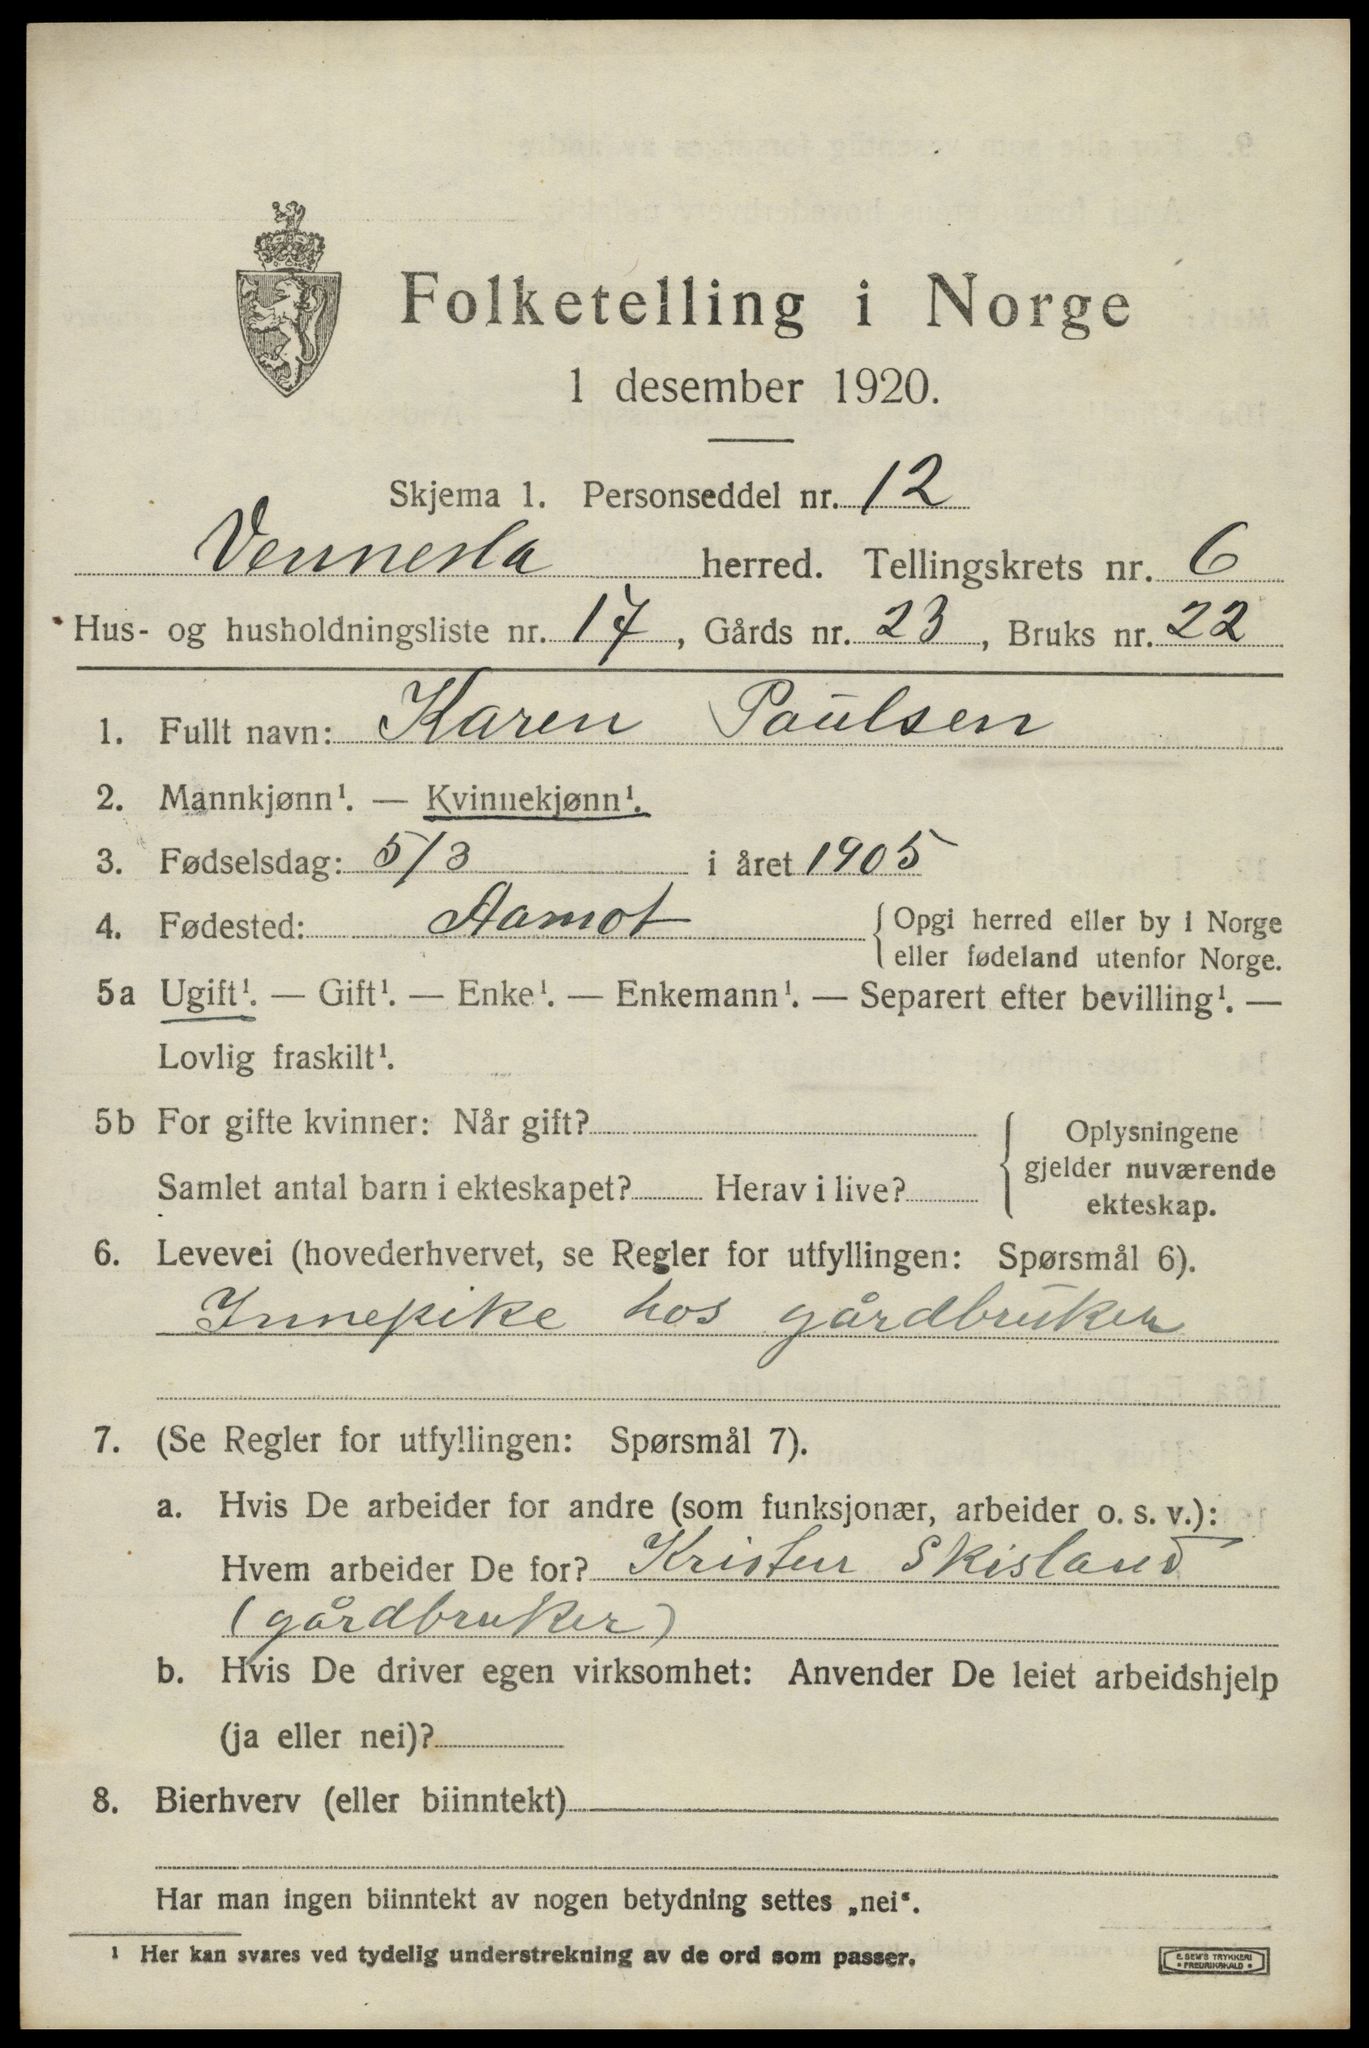 Folketelling i Norge
1 desember 1920.
Skjema 1. Personseddel nr. 12
Vennesla herred. Tellingskrets nr. 6
Hus- og husholdningsliste nr. 17, Gårds nr. 23, Bruks nr. 22
1. Fullt navn: Karen Paulsen
2. Mannkjønn¹. — Kvinnekjønn¹.
3. Fødselsdag: 5/3 i året 1905
4. Fødested: Aamot { Opgi herred eller by i Norge
eller fødeland utenfor Norge.
5a Ugift¹. — Gift¹. — Enke¹. — Enkemann¹. — Separert efter bevilling¹. —
Lovlig fraskilt¹.
5b For gifte kvinner: Når gift?
Samlet antal barn i ekteskapet? Herav i live?
{ Oplysningene
gjelder nuværende
ekteskap.
6. Levevei (hovederhvervet, se Regler for utfyllingen: Spørsmål 6).
Innepike hos gårdbruker
7. (Se Regler for utfyllingen: Spørsmål 7).
a. Hvis De arbeider for andre (som funksjonær, arbeider o. s. v.):
Hvem arbeider De for? Kristen Skisland
(gårdbruker)
b. Hvis De driver egen virksomhet: Anvender De leiet arbeidshjelp
(ja eller nei)?
8. Bierhverv (eller biinntekt)
Har man ingen biinntekt av nogen betydning settes „nei“.
¹ Her kan svares ved tydelig understrekning av de ord som passer.
E. SEM'S TRYKKERI
• FREDRIKSHALD •